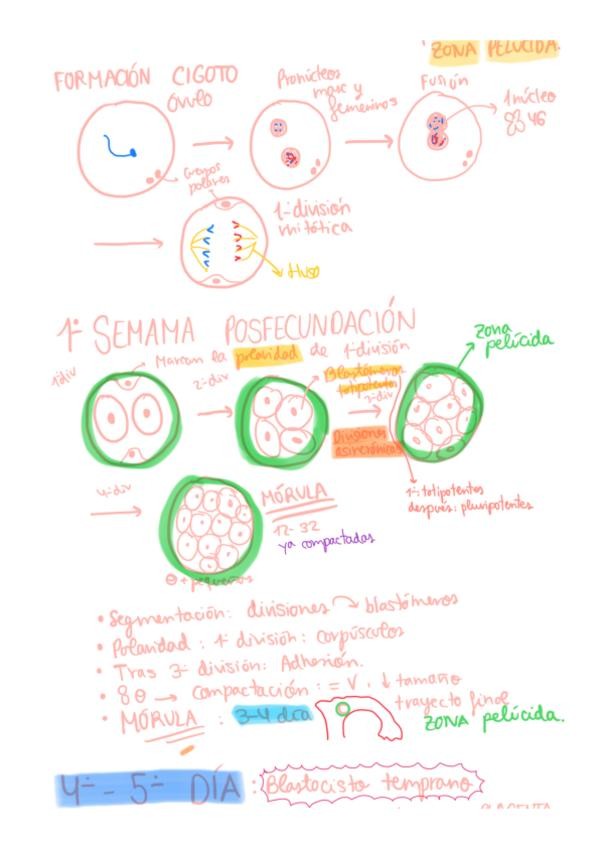 ZONA PELUCIDA.
FORMACIÓN CIGOTO
óvulo
Pronúcleos
masc y
femeninos
Fusión
1 núcleo
46
Cuerpos
polares
1ª división
mitótica
Huso
1ª SEMAMA POSFECUNDACIÓN
Zona
pelúcida
1ª div
Marcan la polaridad de 1ª división
2ª div
Blastómeros
totipotentes
Divisiones
asincrónicas
1º: totipotentes
después: pluripotentes
4ª div
MÓRULA
12-32
ya compactadas
+ pequeños
• Segmentación: divisiones blastómeros
• Polaridad: 1ª división: corpúsculos
• Tras 3ª división: Adhesión.
• 8 → compactación: = V. ↓ tamaño
• MÓRULA: 3-4 día
trayecto final
ZONA pelúcida.
4º - 5º DÍA: Blastocisto temprano